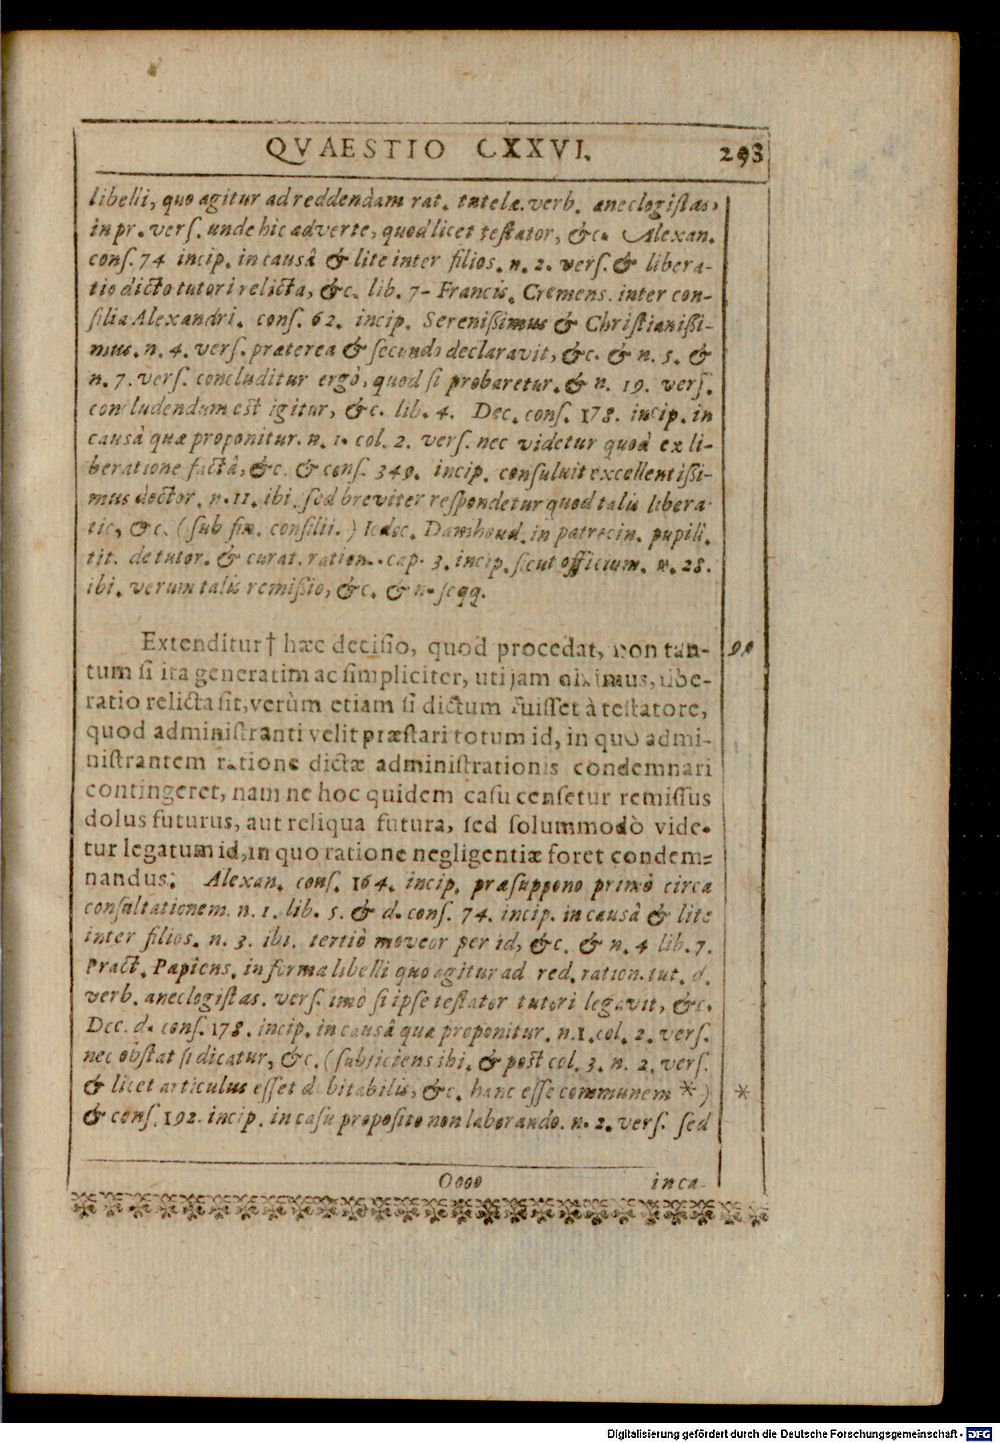 QVAESTIO CXXVI. 293
libelli, quo agitur ad reddendam rat. tutelæ. verb. aneclogistas,
in pr. vers. unde hic adverte, quod licet testator, &c. Alexan.
cons. 74 incip. in causâ & lite inter filios. n. 2. vers. & libera-
tio dicto tutori relicta, &c. lib. 7- Francis. Cremens. inter con-
silia Alexandri. cons. 62. incip. Serenissimus & Christianissi-
mus. n. 4. vers. præterea & secundo declaravit, &c. & n. 5. &
n. 7. vers. concluditur ergò, quod si probaretur. & n. 19. vers.
concludendum est igitur, &c. lib. 4. Dec. cons. 178. incip. in
causâ quæ proponitur. n. 1. col. 2. vers. nec videtur quod ex li-
beratione factâ, &c. & cons. 349. incip. consuluit excellentissi-
mus doctor. n. 11. ibi. sed breviter respondetur quod talis libera
tio, &c. (sub fin. consilii.) Iodoc. Damhoud. in patrocin. pupill.
tit. de tutor. & curat. ration. cap. 3. incip. sicut officium. n. 28.
ibi. verum talis remissio, &c. & n. seqq.
Extenditur† hæc decisio, quod procedat, non tan- 99
tum si ita generatim ac simpliciter, uti jam diximus, libe-
ratio relicta sit, verùm etiam si dictum fuisset à testatore,
quod administranti velit præstari totum id, in quo admi-
nistrantem ratione dictæ administrationis condemnari
contingeret, nam ne hoc quidem casu censetur remissus
dolus futurus, aut reliqua futura, sed solummodò vide-
tur legatum id, in quo ratione negligentiæ foret condem-
nandus. Alexan. cons. 164. incip. præsuppono primò circa
consultationem. n. 1. lib. 5. & d. cons. 74. incip. in causâ & lite
inter filios. n. 3. ibi. tertiò moveor per id, &c. & n. 4 lib. 7.
Pract. Papiens. in forma libelli quo agitur ad red. ration. tut. d.
verb. aneclogistas. vers. imò si ipse testator tutori legavit, &c.
Dec. d. cons. 178. incip. in causâ quæ proponitur. n. 1. col. 2. vers.
nec obstat si dicatur, &c. (subjiciens ibi. & post col. 3. n. 2. vers.
& licet articulus esset dubitabilis, &c. hanc esse communem *) *
& cons. 192. incip. in casu proposito non laborando. n. 2. vers. sed
Oooo inca-
Digitalisierung gefördert durch die Deutsche Forschungsgemeinschaft - DFG